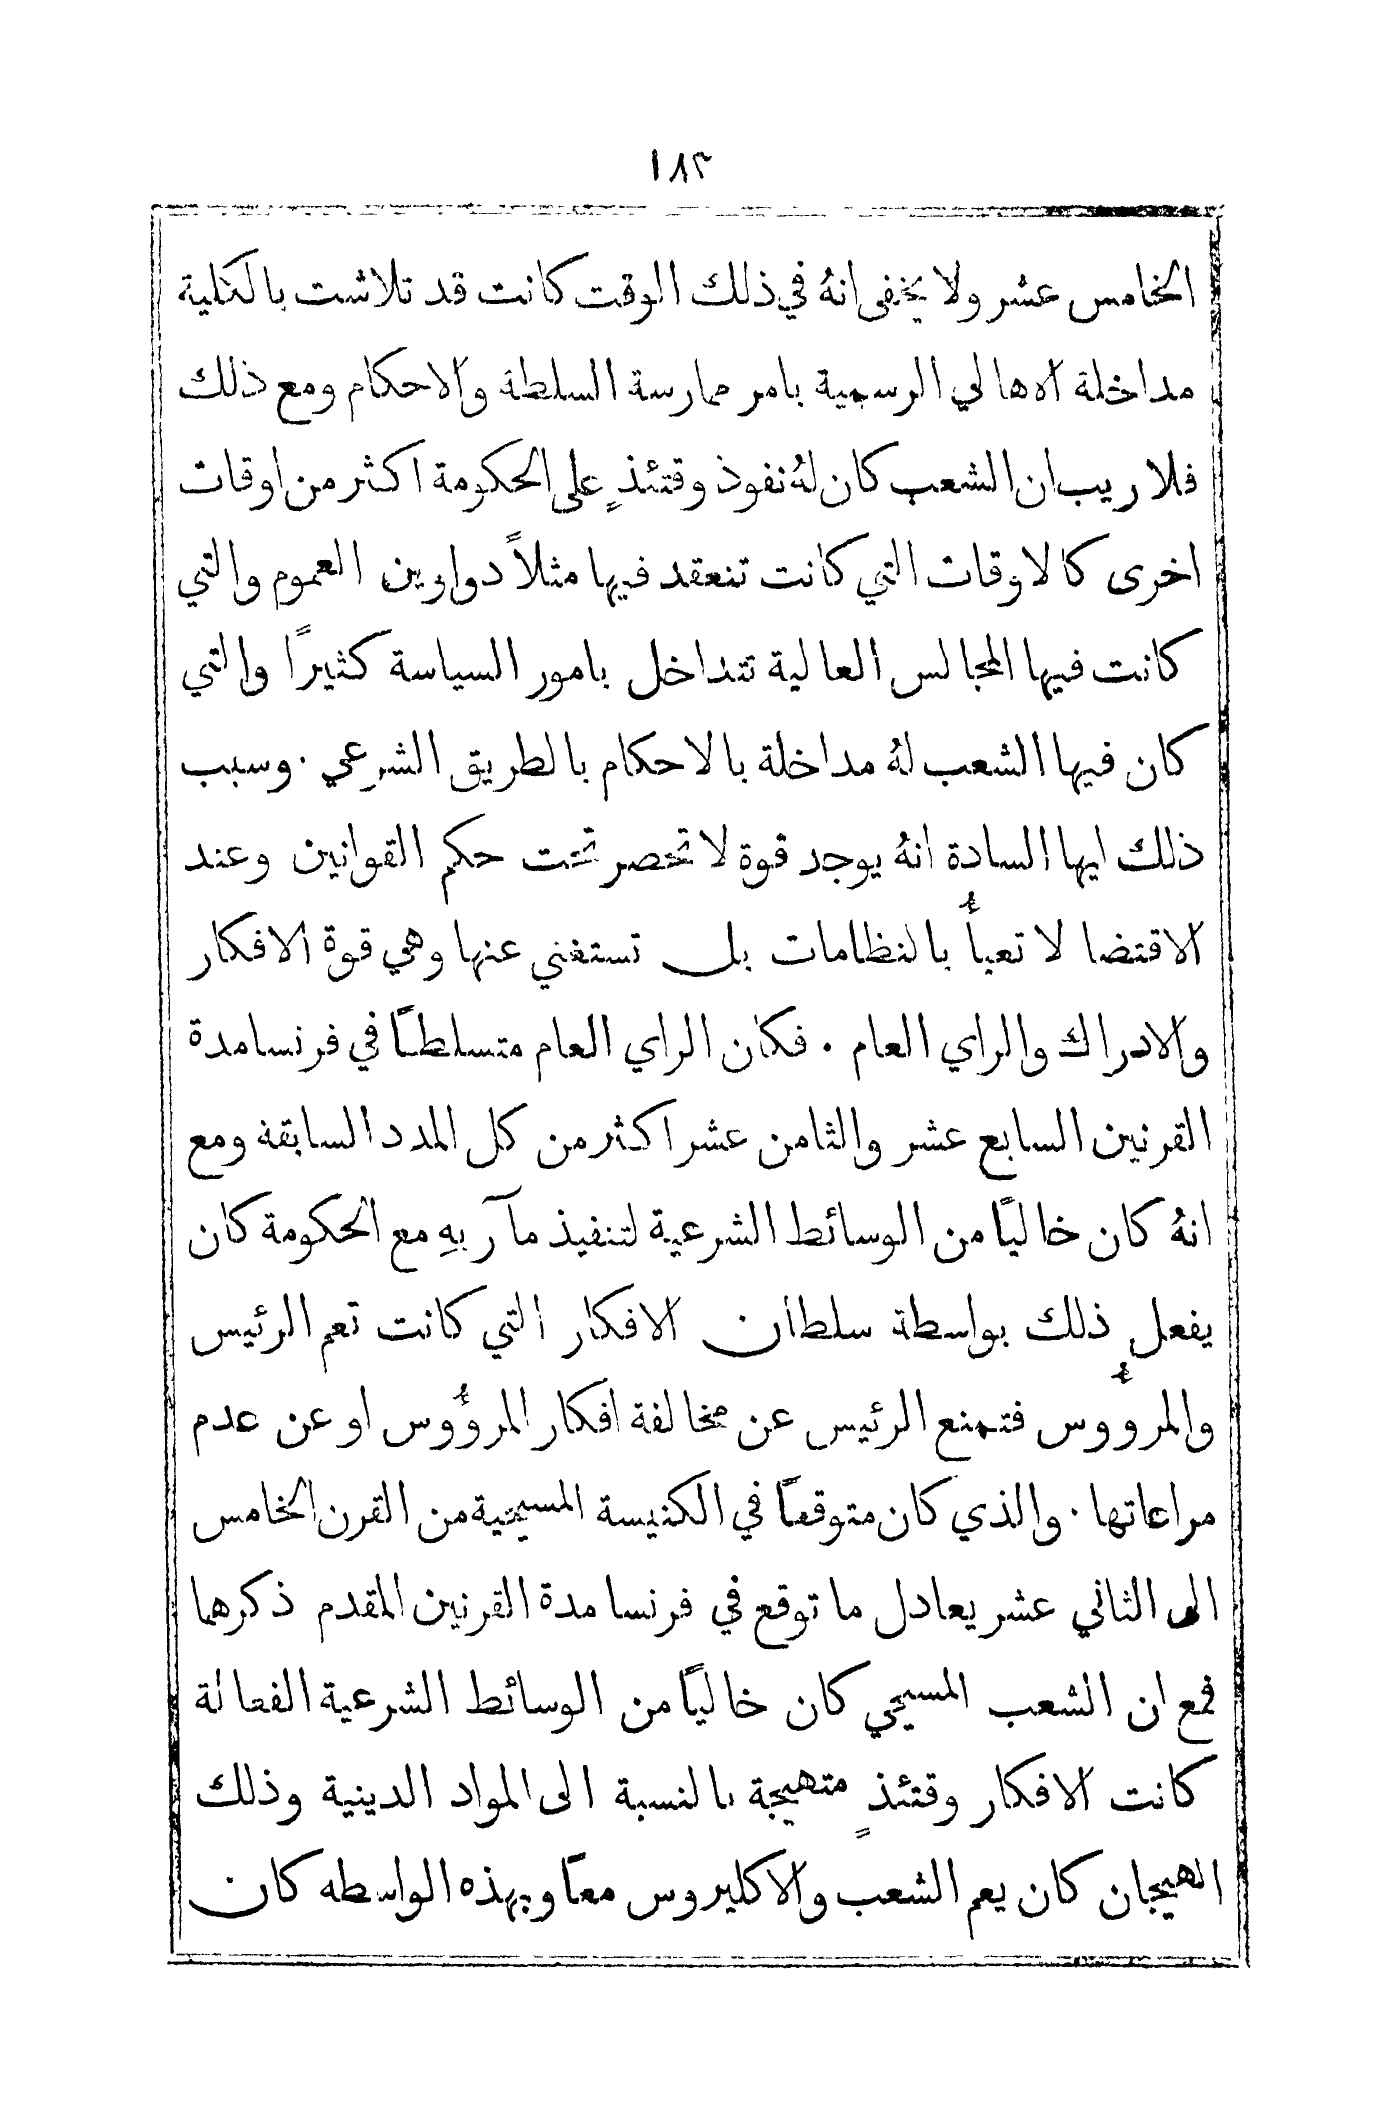 ١٨٣
الخامس عشر ولا يخفى انهُ في ذلك الوقت كانت قد تلاشت بالكلية
مداخلة الاهالي الرسمية بامر ممارسة السلطة والاحكام ومع ذلك
فلا ريب ان الشعب كان لهُ نفوذ وقتئذٍ على الحكومة اكثر من اوقات
اخرى كالاوقات التي كانت تنعقد فيها مثلاً دواوين العموم والتي
كانت فيها المجالس العالية تتداخل بامور السياسة كثيرًا والتي
كان فيها الشعب لهُ مداخلة بالاحكام بالطريق الشرعي . وسبب
ذلك ايها السادة انهُ يوجد قوة لا تحصر تحت حكم القوانين وعند
الاقتضا لا تعبأُ بالنظامات بل تستغني عنها وهي قوة الافكار
والادراك والراي العام . فكان الراي العام متسلطًا في فرنسا مدة
القرنين السابع عشر والثامن عشر اكثر من كل المدد السابقة ومع
انهُ كان خاليًا من الوسائط الشرعية لتنفيذ مآربهِ مع الحكومة كان
يفعل ذلك بواسطة سلطان الافكار التي كانت تعم الرئيس
والمرؤُوس فتمنع الرئيس عن مخالفة افكار المرؤُوس او عن عدم
مراعاتها . والذي كان متوقعًا في الكنيسة المسيحية من القرن الخامس
الى الثاني عشر يعادل ما توقع في فرنسا مدة القرنين المقدم ذكرهما
فمع ان الشعب المسيحي كان خاليًا من الوسائط الشرعية الفعالة
كانت الافكار وقتئذٍ متهيجة بالنسبة الى المواد الدينية وذلك
الهيجان كان يعم الشعب والاكليروس معًا وبهذه الواسطه كان